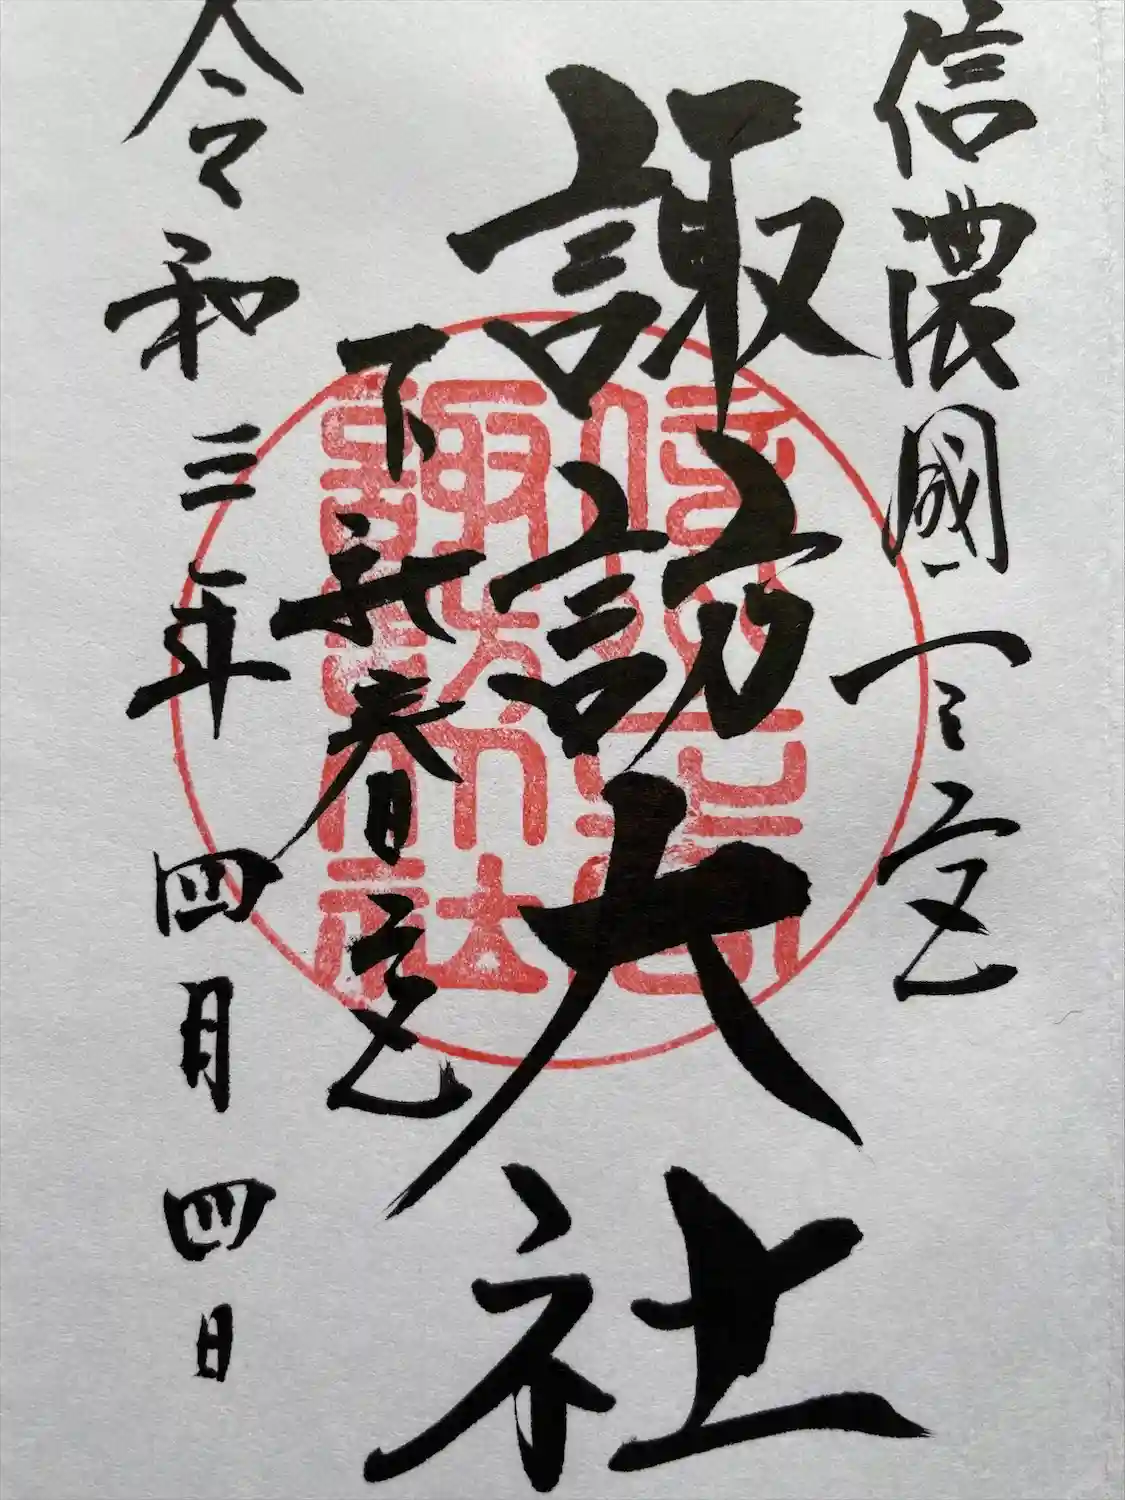 信濃國一之宮
諏訪大社
下社春宮
令和三年四月四日
諏訪大社